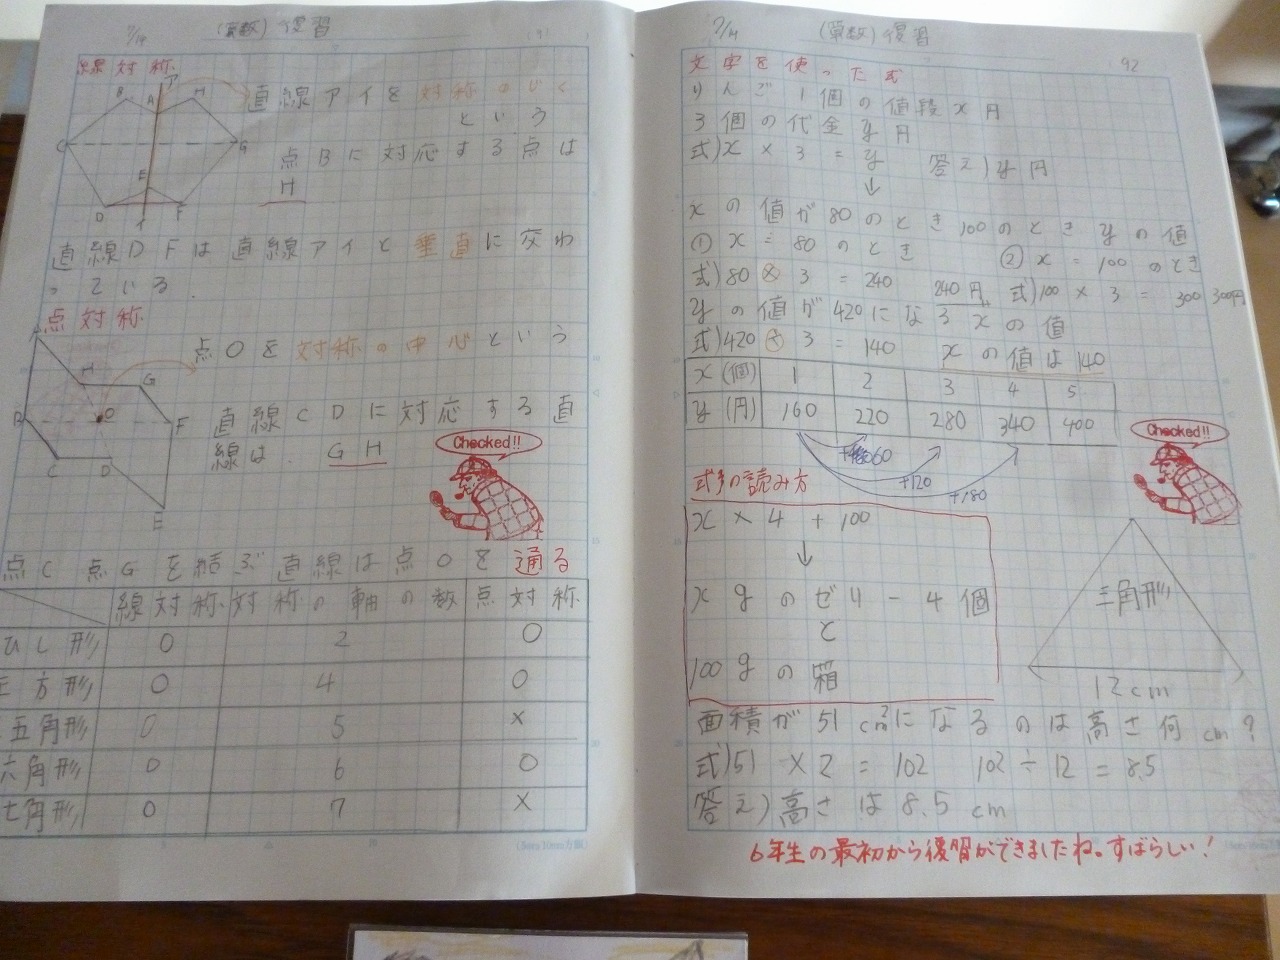 7/14 (算数) 復習 91
線対称
ア
B A H
C G
E
D F
イ
直線アイを対称のじく
という
点Bに対応する点は
H
直線DFは直線アイと垂直に交わ
っている.
点対称
A
H G
O
B F
C D
E
点Oを対称の中心という
直線CDに対応する直
線は. GH
Checked!!
点C 点Gを結ぶ直線は点Oを通る
線対称 対称の軸の数 点対称
ひし形 0 2 0
正方形 0 4 0
五角形 0 5 ×
六角形 0 6 0
七角形 0 7 ×
7/14 (算数) 復習 92
文字を使った式
りんご1個の値段x円
3個の代金y円
式)x×3=y 答え)y円
↓
xの値が80のとき100のときyの値
① x=80のとき ② x=100のとき
式)80×3=240 240円 式)100×3=300 300円
yの値が420になるxの値
式)420÷3=140 xの値は140
x(個) 1 2 3 4 5
y(円) 160 220 280 340 400
+60
+120
+180
Checked!!
式の読み方
x×4+100
↓
xgのゼリー4個
と
100gの箱
三角形
12cm
面積が51cm²になるのは高さ何cm?
式)51×2=102 102÷12=8.5
答え)高さは8.5cm
6年生の最初から復習ができましたね。すばらしい!